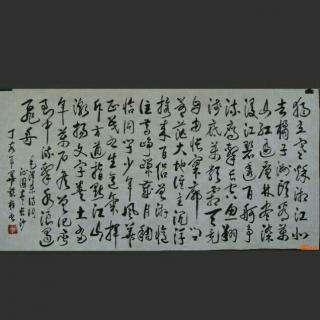 独立寒秋湘江北
去橘子洲头看万
山红遍层林尽染
漫江碧透百舸争
流鹰击长空鱼翔
浅底万类霜天竞
自由怅寥廓问
苍茫大地谁主沉浮
携来百侣曾游忆
往昔峥嵘岁月稠
恰同学少年风华
正茂书生意气挥
斥方遒指点江山
激扬文字粪土当
年万户侯曾记否
到中流击水浪遏
飞舟
毛泽东诗词
沁园春长沙
丁亥年